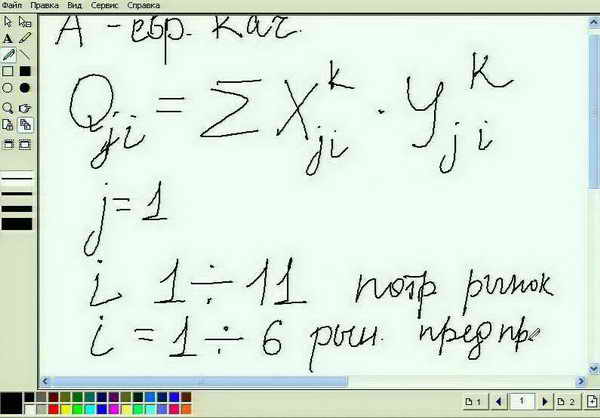 Файл Правка Вид Сервис Справка
А - евр. кач.
Q_{ji} = Σ X_{ji}^{k} · Y_{ji}^{k}
j = 1
i 1 ÷ 11 потр рынок
i = 1 ÷ 6 рын. предпр
1 1 2